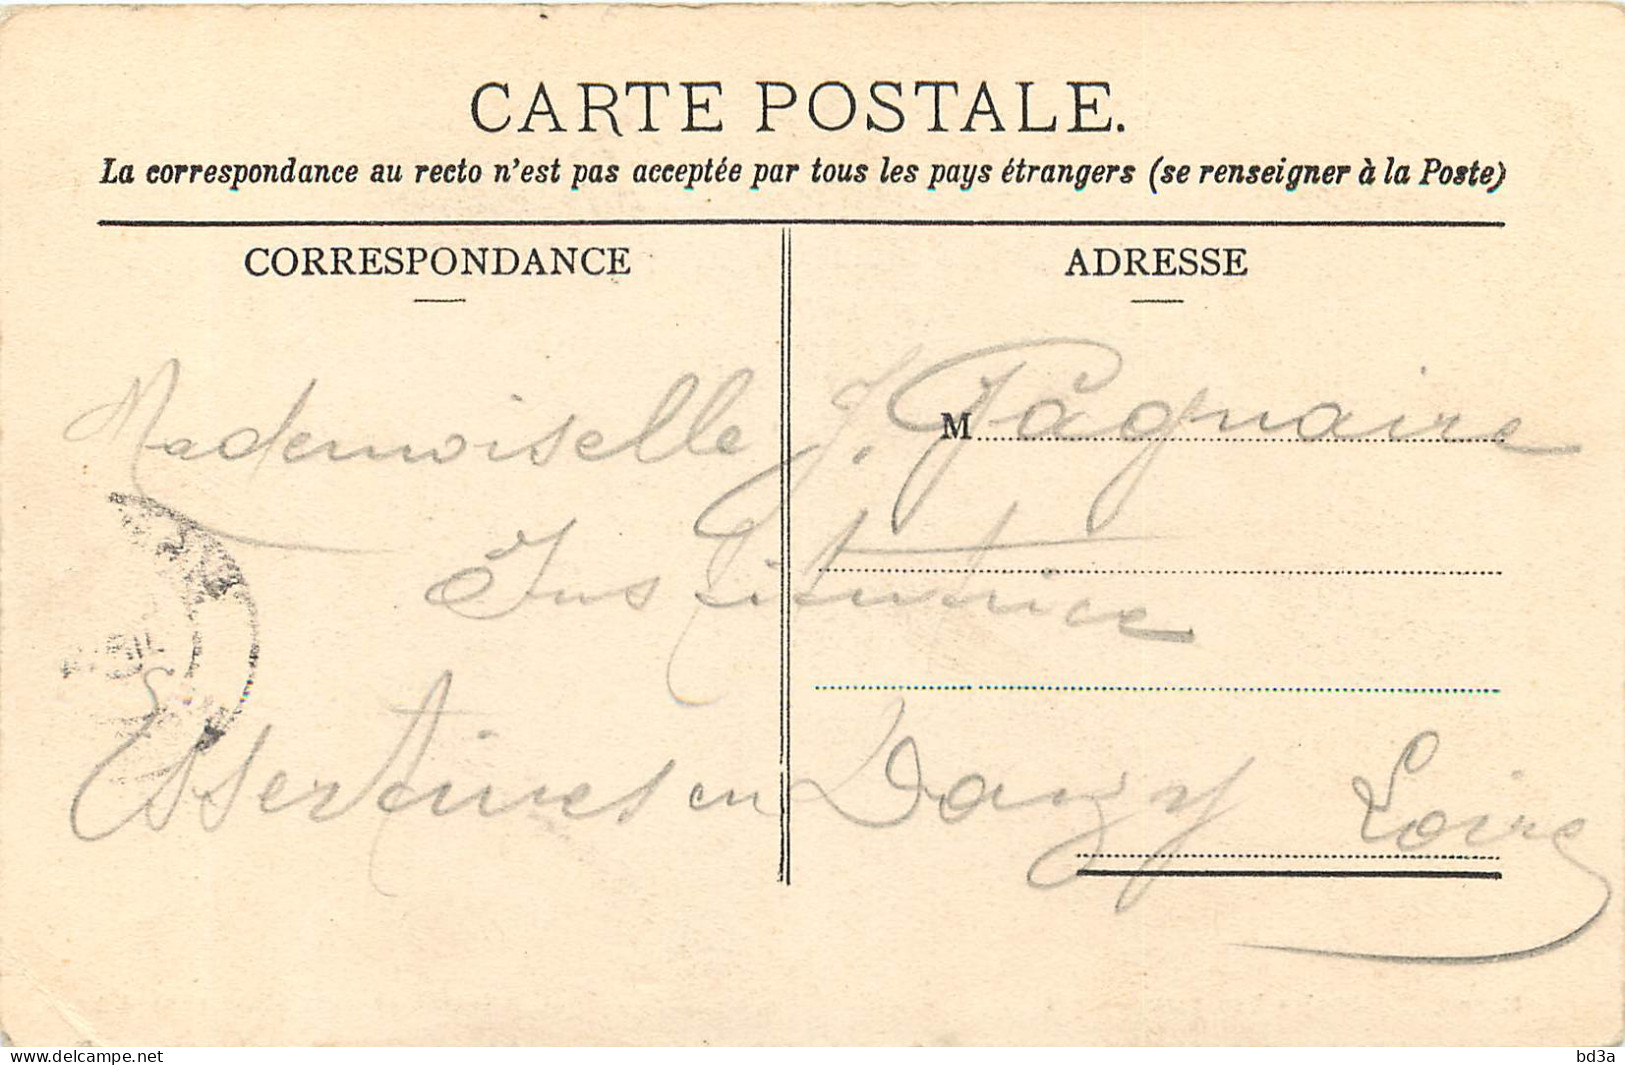 CARTE POSTALE.
La correspondance au recto n'est pas acceptée par tous les pays étrangers (se renseigner à la Poste)
CORRESPONDANCE
ADRESSE
M
Mademoiselle J. Pâgnaire
Institutrice
Essertines en Donzy Loire
www.delcampe.net
bd3a